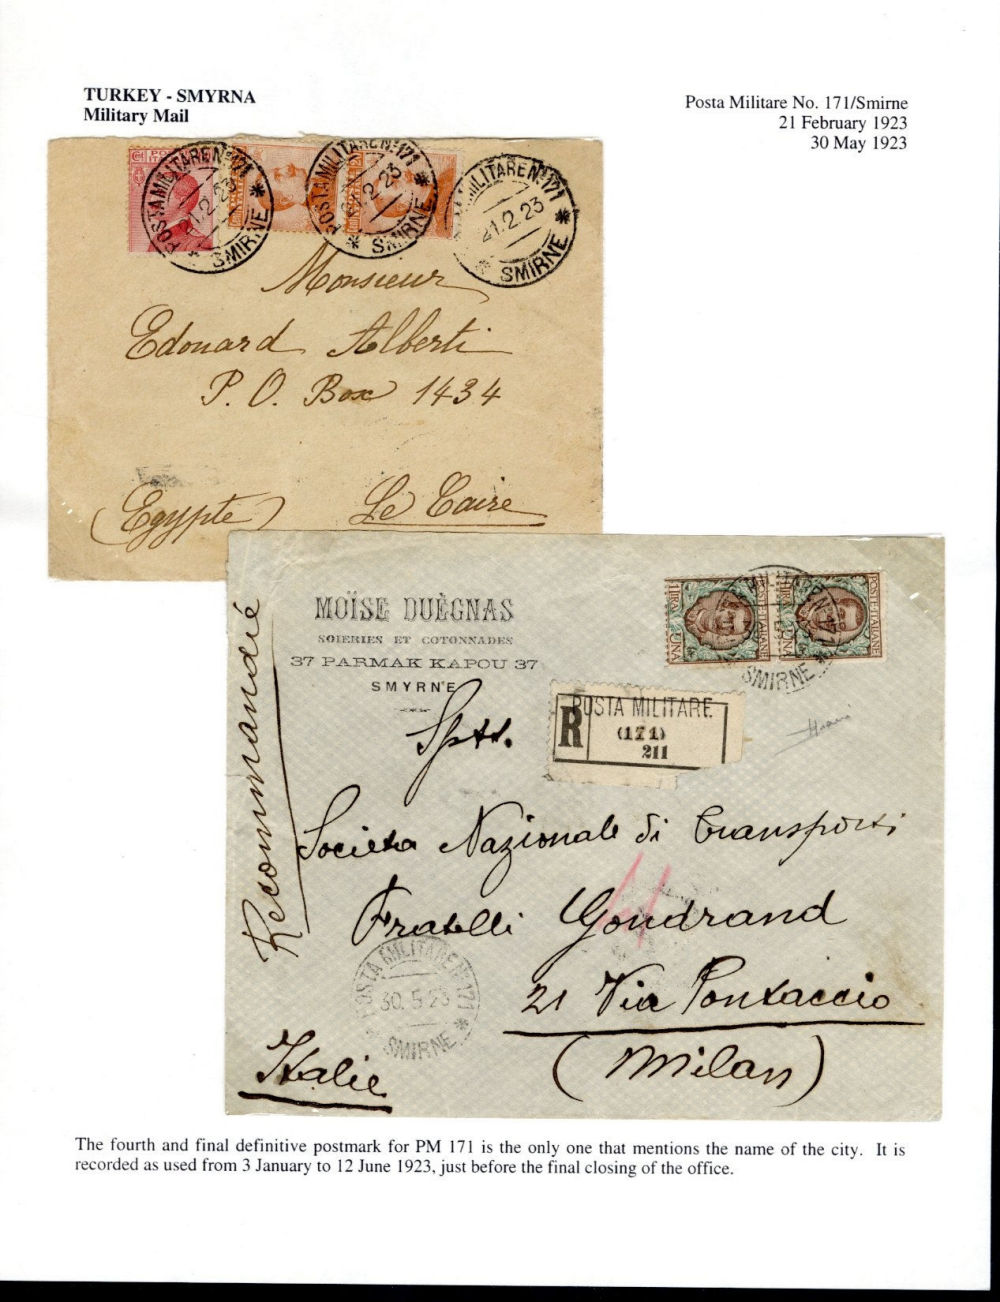 TURKEY - SMYRNA
Military Mail
Posta Militare No. 171/Smirne
21 February 1923
30 May 1923
POSTA MILITARE No 171
SMIRNE
POSTA MILITARE No 171
SMIRNE
MILITARE No 171
21.2.23
SMIRNE
Monsieur
Edouard Alberti
P. O. Box 1434
(Egypte) Le Caire
MOÏSE DUÈGNAS
SOIERIES ET COTONNADES
37 PARMAK KAPOU 37
SMYRNE
1 LIRA UNA
POSTE ITALIANE
SMIRNE
Recommandié
R
POSTA MILITARE
(171)
211
Spett.
Societa Nazionale di Transporti
Fratelli Gondrand
21 Via Pontaccio
(Milan)
POSTA MILITARE No 171
30.5.23
SMIRNE
Italie
The fourth and final definitive postmark for PM 171 is the only one that mentions the name of the city. It is
recorded as used from 3 January to 12 June 1923, just before the final closing of the office.